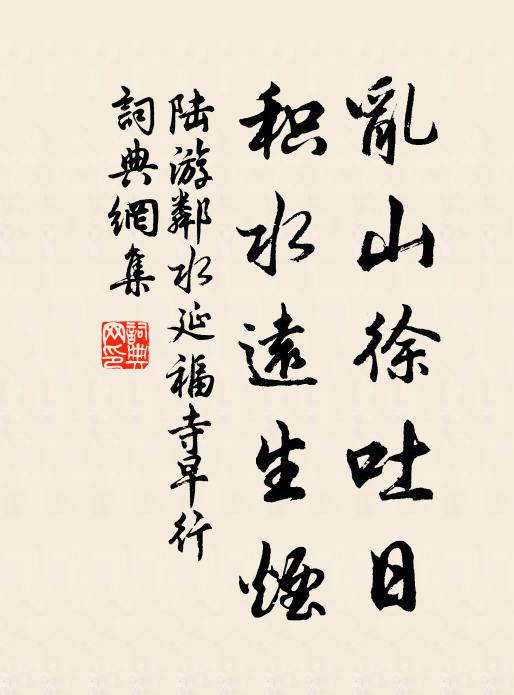 亂山徐吐日
积水遠生煙
陆游鄰水延福寺早行
詞典網集
詞典网印